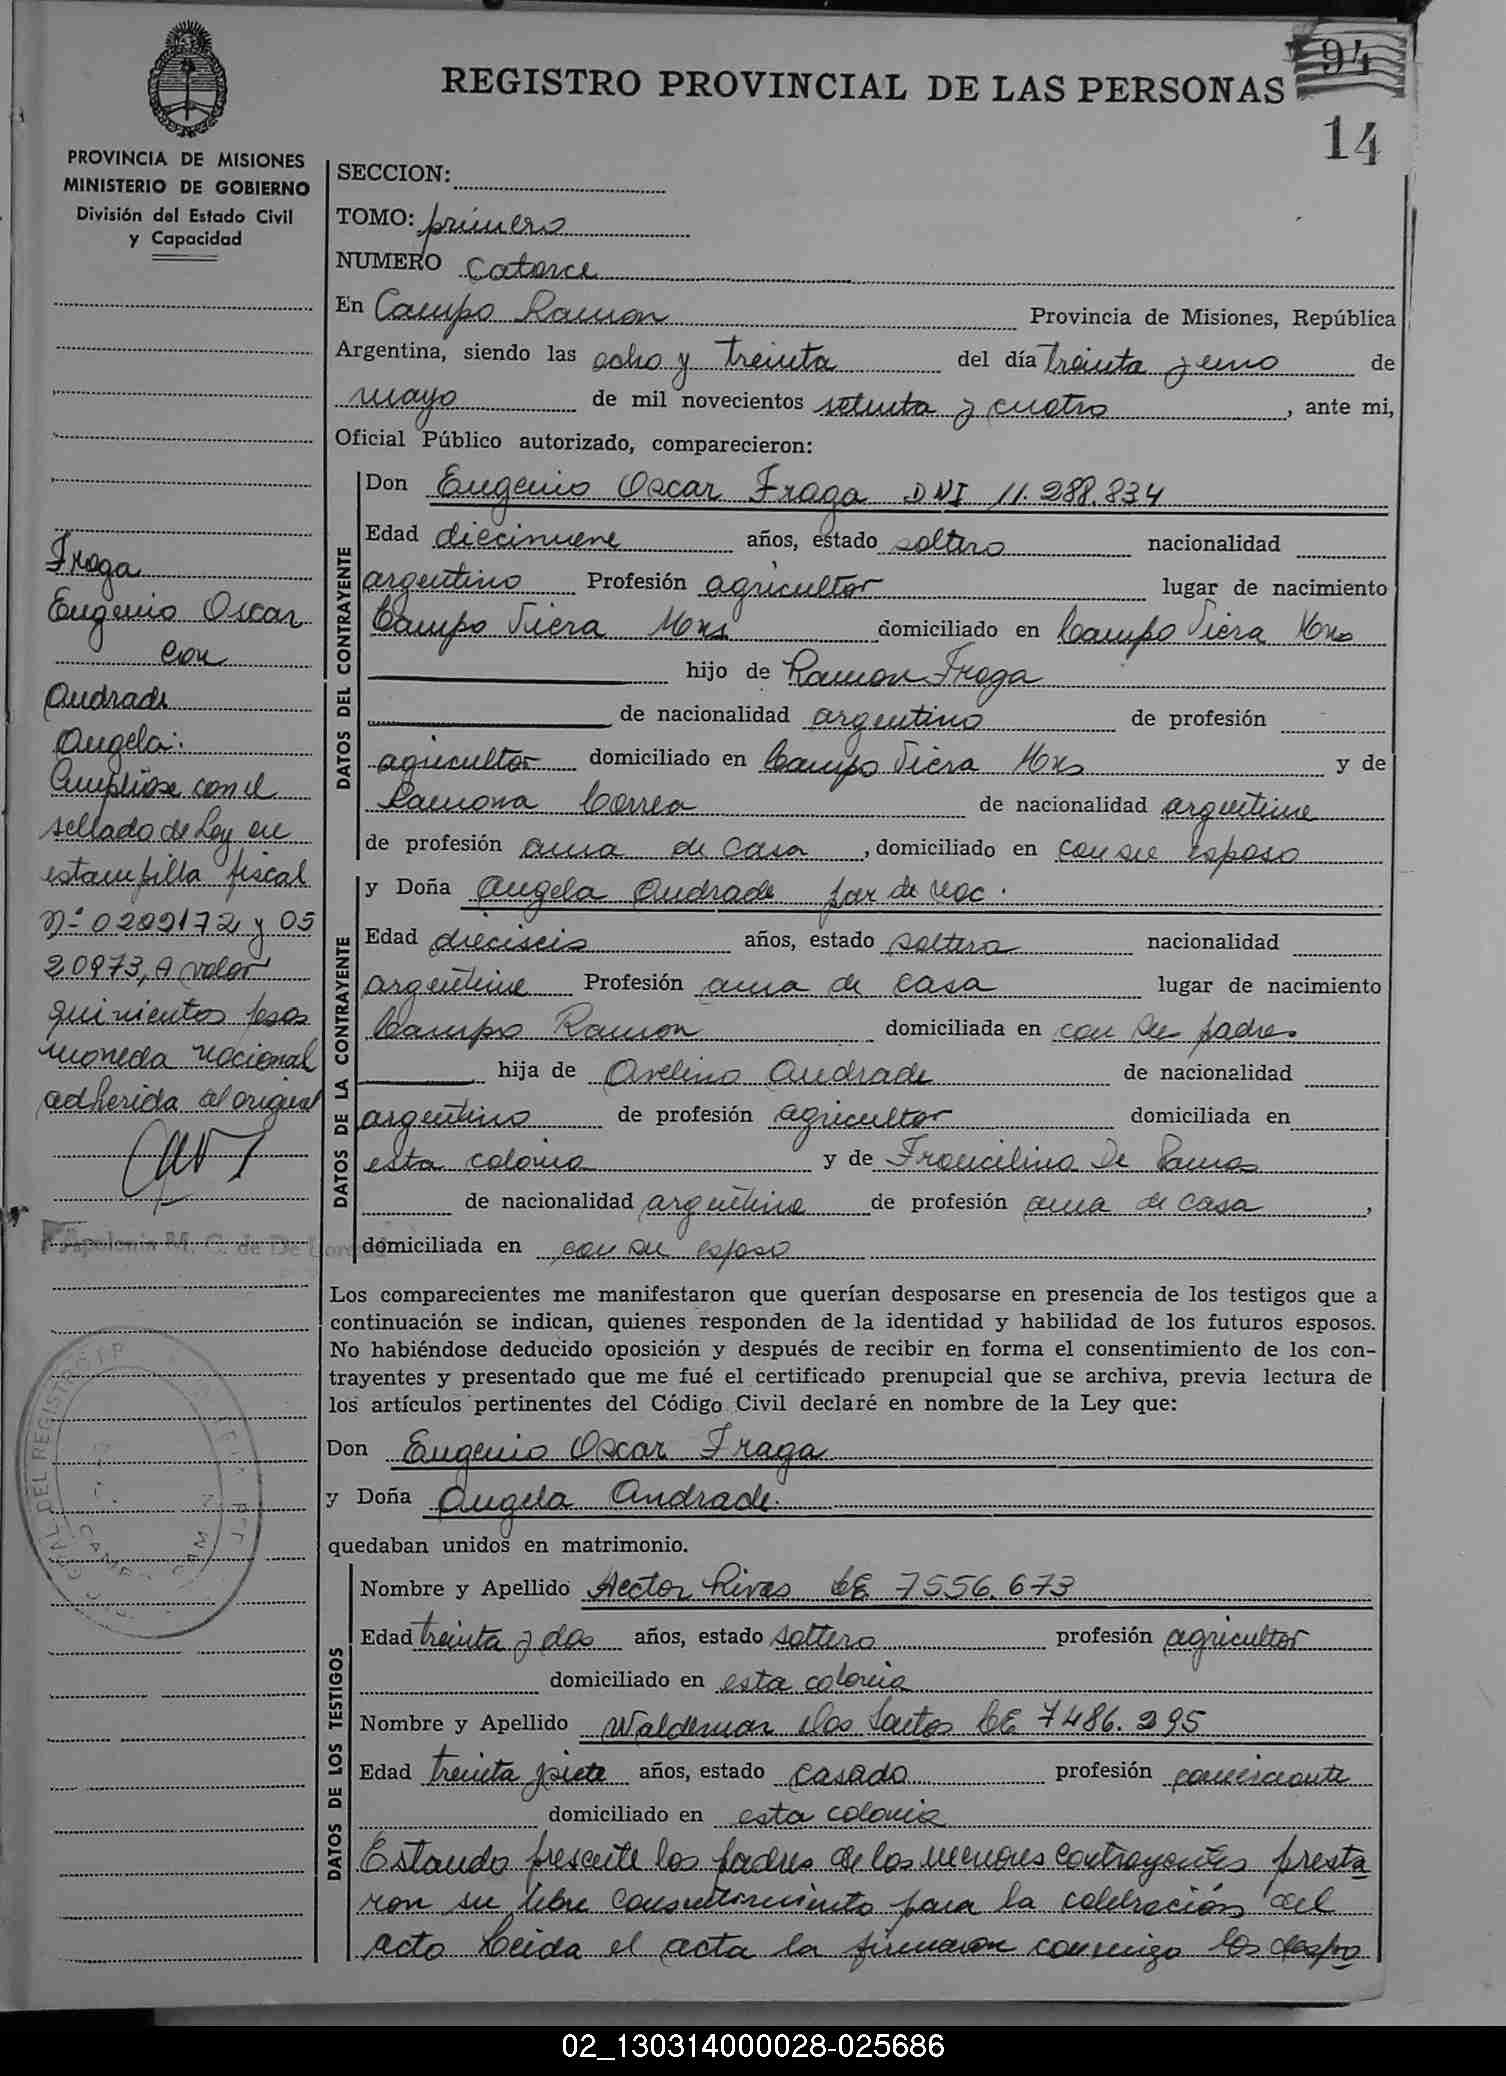 REGISTRO PROVINCIAL DE LAS PERSONAS
94
14
PROVINCIA DE MISIONES
MINISTERIO DE GOBIERNO
División del Estado Civil
y Capacidad
Fraga
Eugenio Oscar
con
Andrade
Angela.
Cumpliose con el
sellado de Ley en
estampilla fiscal
Nº 0209172 y 05
20973, A valor
quinientos pesos
moneda nacional
adherida al original
Apolonia M. C. de De
SECCION:
TOMO: primero
NUMERO Catorce
En Campo Ramon Provincia de Misiones, República
Argentina, siendo las ocho y treinta del día treinta y uno de
mayo de mil novecientos setenta y cuatro, ante mi,
Oficial Público autorizado, comparecieron:
DATOS DEL CONTRAYENTE
Don Eugenio Oscar Fraga DNI 11.288.834
Edad diecinueve años, estado soltero nacionalidad
argentino Profesión agricultor lugar de nacimiento
Campo Viera Mnes domiciliado en Campo Viera Mnes
hijo de Ramon Fraga
de nacionalidad argentino de profesión
agricultor domiciliado en Campo Viera Mnes y de
Ramona Correa de nacionalidad argentina
de profesión ama de casa, domiciliado en con su esposo
DATOS DE LA CONTRAYENTE
y Doña Angela Andrade par de nac.
Edad dieciseis años, estado soltera nacionalidad
argentina Profesión ama de casa lugar de nacimiento
Campo Ramon domiciliada en con su padre.
hija de Avelino Andrade de nacionalidad
argentino de profesión agricultor domiciliada en
esta colonia y de Francilina De Ramos
de nacionalidad argentina de profesión ama de casa,
domiciliada en con su esposo
Los comparecientes me manifestaron que querían desposarse en presencia de los testigos que a
continuación se indican, quienes responden de la identidad y habilidad de los futuros esposos.
No habiéndose deducido oposición y después de recibir en forma el consentimiento de los con-
trayentes y presentado que me fué el certificado prenupcial que se archiva, previa lectura de
los artículos pertinentes del Código Civil declaré en nombre de la Ley que:
Don Eugenio Oscar Fraga
y Doña Angela Andrade.
quedaban unidos en matrimonio.
DATOS DE LOS TESTIGOS
Nombre y Apellido Hector Rivas LE 7556.673
Edad treinta y dos años, estado soltero profesión agricultor
domiciliado en esta colonia
Nombre y Apellido Waldemar Dos Santos LE 7486.295
Edad treinta siete años, estado casado profesión comerciante
domiciliado en esta colonia
Estando presente los padres de los menores contrayentes presta
ron su libre consentimiento para la celebración del
acto Leida el acta la firmaron conmigo los despo
02_130314000028-025686